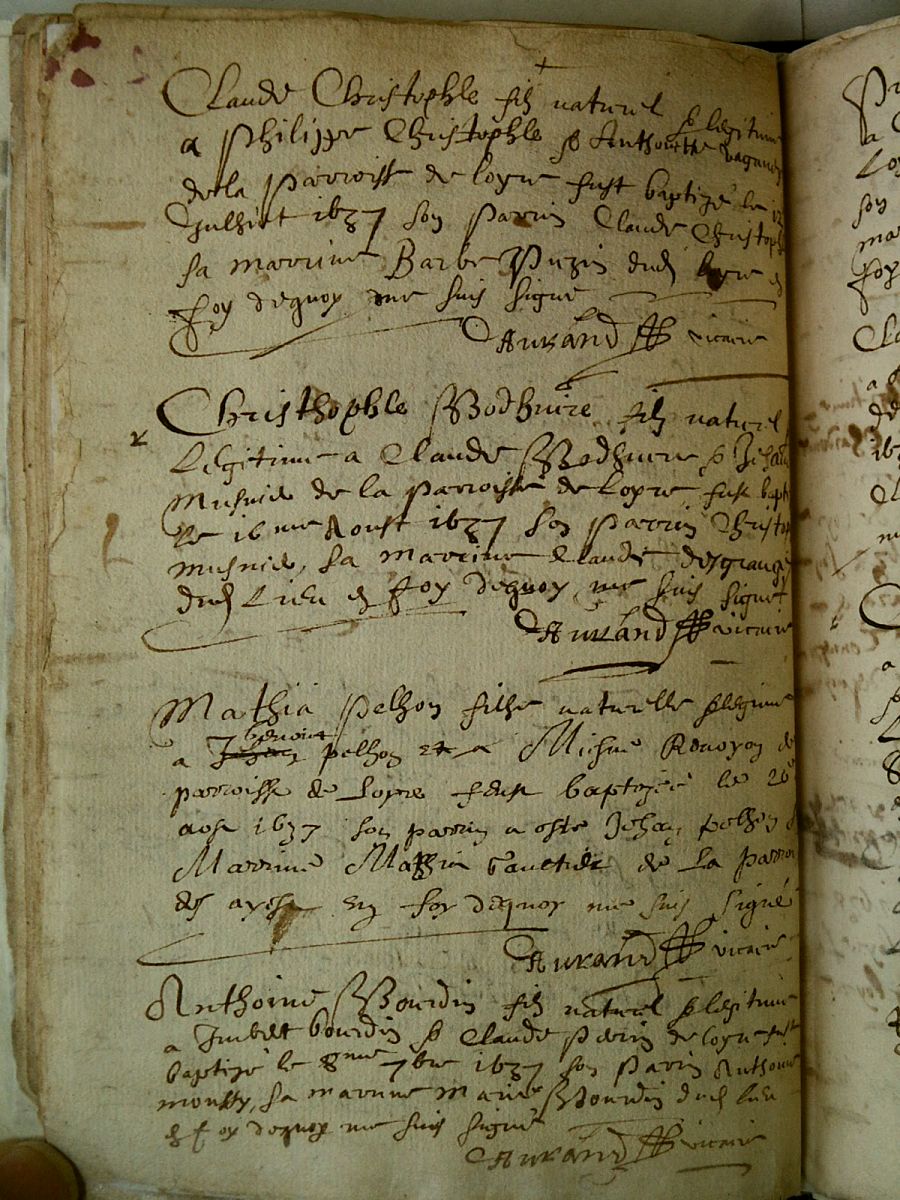 Claude Christophle filz naturel & legitime
a Philippe Christophle & Anthoinette
de la parroisse de loyre fust baptizé le
Julhiet 1637 son parrin Claude Christoph
sa marrine Barbe Puzin dud loyre en
foy dequoy me suis signé
Durand vicaire
Christhophle Bodhuire filz naturel
Legitime a Claude Bodhuire & Jeha
musnié de la parroisse de loyre fust bapt
le 16 me Aoust 1637 son parrin Christop
musnié, sa marrine Claude desgrang
dud Lieu en foy dequoy me suis signé
Durand vicaire
Mathia pelhon filhe naturelle & legime
benoist
a Jehan pelhon et a Michie Revoyon de
parroisse de Loyre feust baptizée le 26
aost 1637 son parrin a esté Jehan pelhon
Marrine Mathia Gaultier de La parroi
des ayes en foy dequoy me suis signé
Durand vicaire
Anthoine Bourdin filz naturel & legitime
a Imbert bourdin & Claude de loyre fust
baptizé le 8me 7bre 1637 son parrin Anthoine
sa marrine Marie Bourdin dud lieu
en foy dequoy me suis signé
Durand vicaire